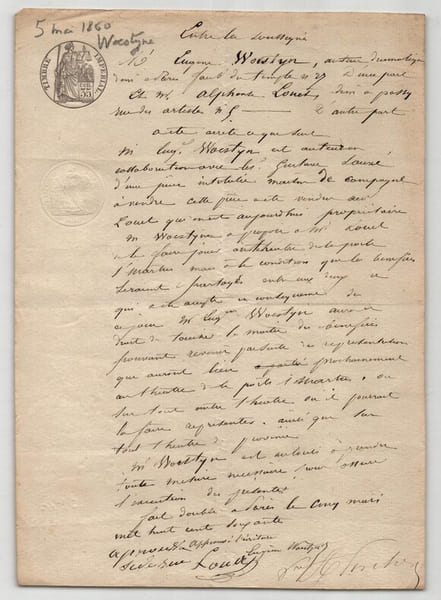 5 mai 1860
Wocstyn
TIMBRE IMPERIAL
35
Entre les soussignés
Mr Eugène Woestyn, auteur dramatique
demt à Paris faub. du temple no 27 D'une part
Et mr Alphonse Louet, demt à passy
rue des artistes no 5 D'autre part
a été arrêté ce qui suit
Mr Eug. Woestyn est auteur en
collaboration avec les Gustave
d'une pièce intitulée maison de campagne
à vendre cette pièce a été vendue au
Louet qui en est aujourd'hui propriétaire
Mr Woestyn a proposé à Mr Louet
de la faire jouer au théâtre de la porte
St Martin mais à la condition que les bénéfices
seraient partagés entre eux deux ce
qui a été accepté en conséquence de
ce jour Mr Eugène Woestyn aura
droit de toucher la moitié des bénéfices
pouvant revenir par suite des représentations
qui auront lieu prochainement
au théâtre de la porte St Martin, ou
sur tout autre théâtre où il pourrait
la faire représenter, ainsi que sur
tout théâtre de province
Mr Woestyn est autorisé à prendre
toute mesure nécessaire pour assurer
l'exécution des présentes
fait double à Paris le Cinq mai
mil huit cent soixante
approuvé l'écriture
Louet
Eugène Woestyn